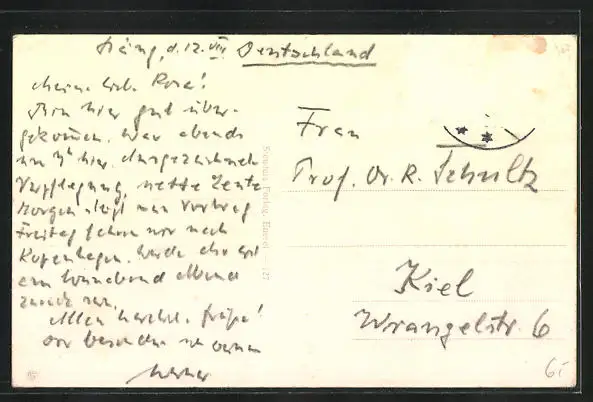 d. 12. VIII Deutschland
Meine lieb. Rosa!
Bin hier gut über-
gekommen. War abends
um hier. Ausgezeichnete
Verpflegung, nette Leute
Morgen man Vortrag
Freitag fahren wir nach
Kopenhagen. Werde
am Sonnabend Abend
zurück sein.
Allen herzl. Grüße!
Werner
Frau
Prof. Dr. R. Schultz
Kiel
Wrangelstr. 6
6,-